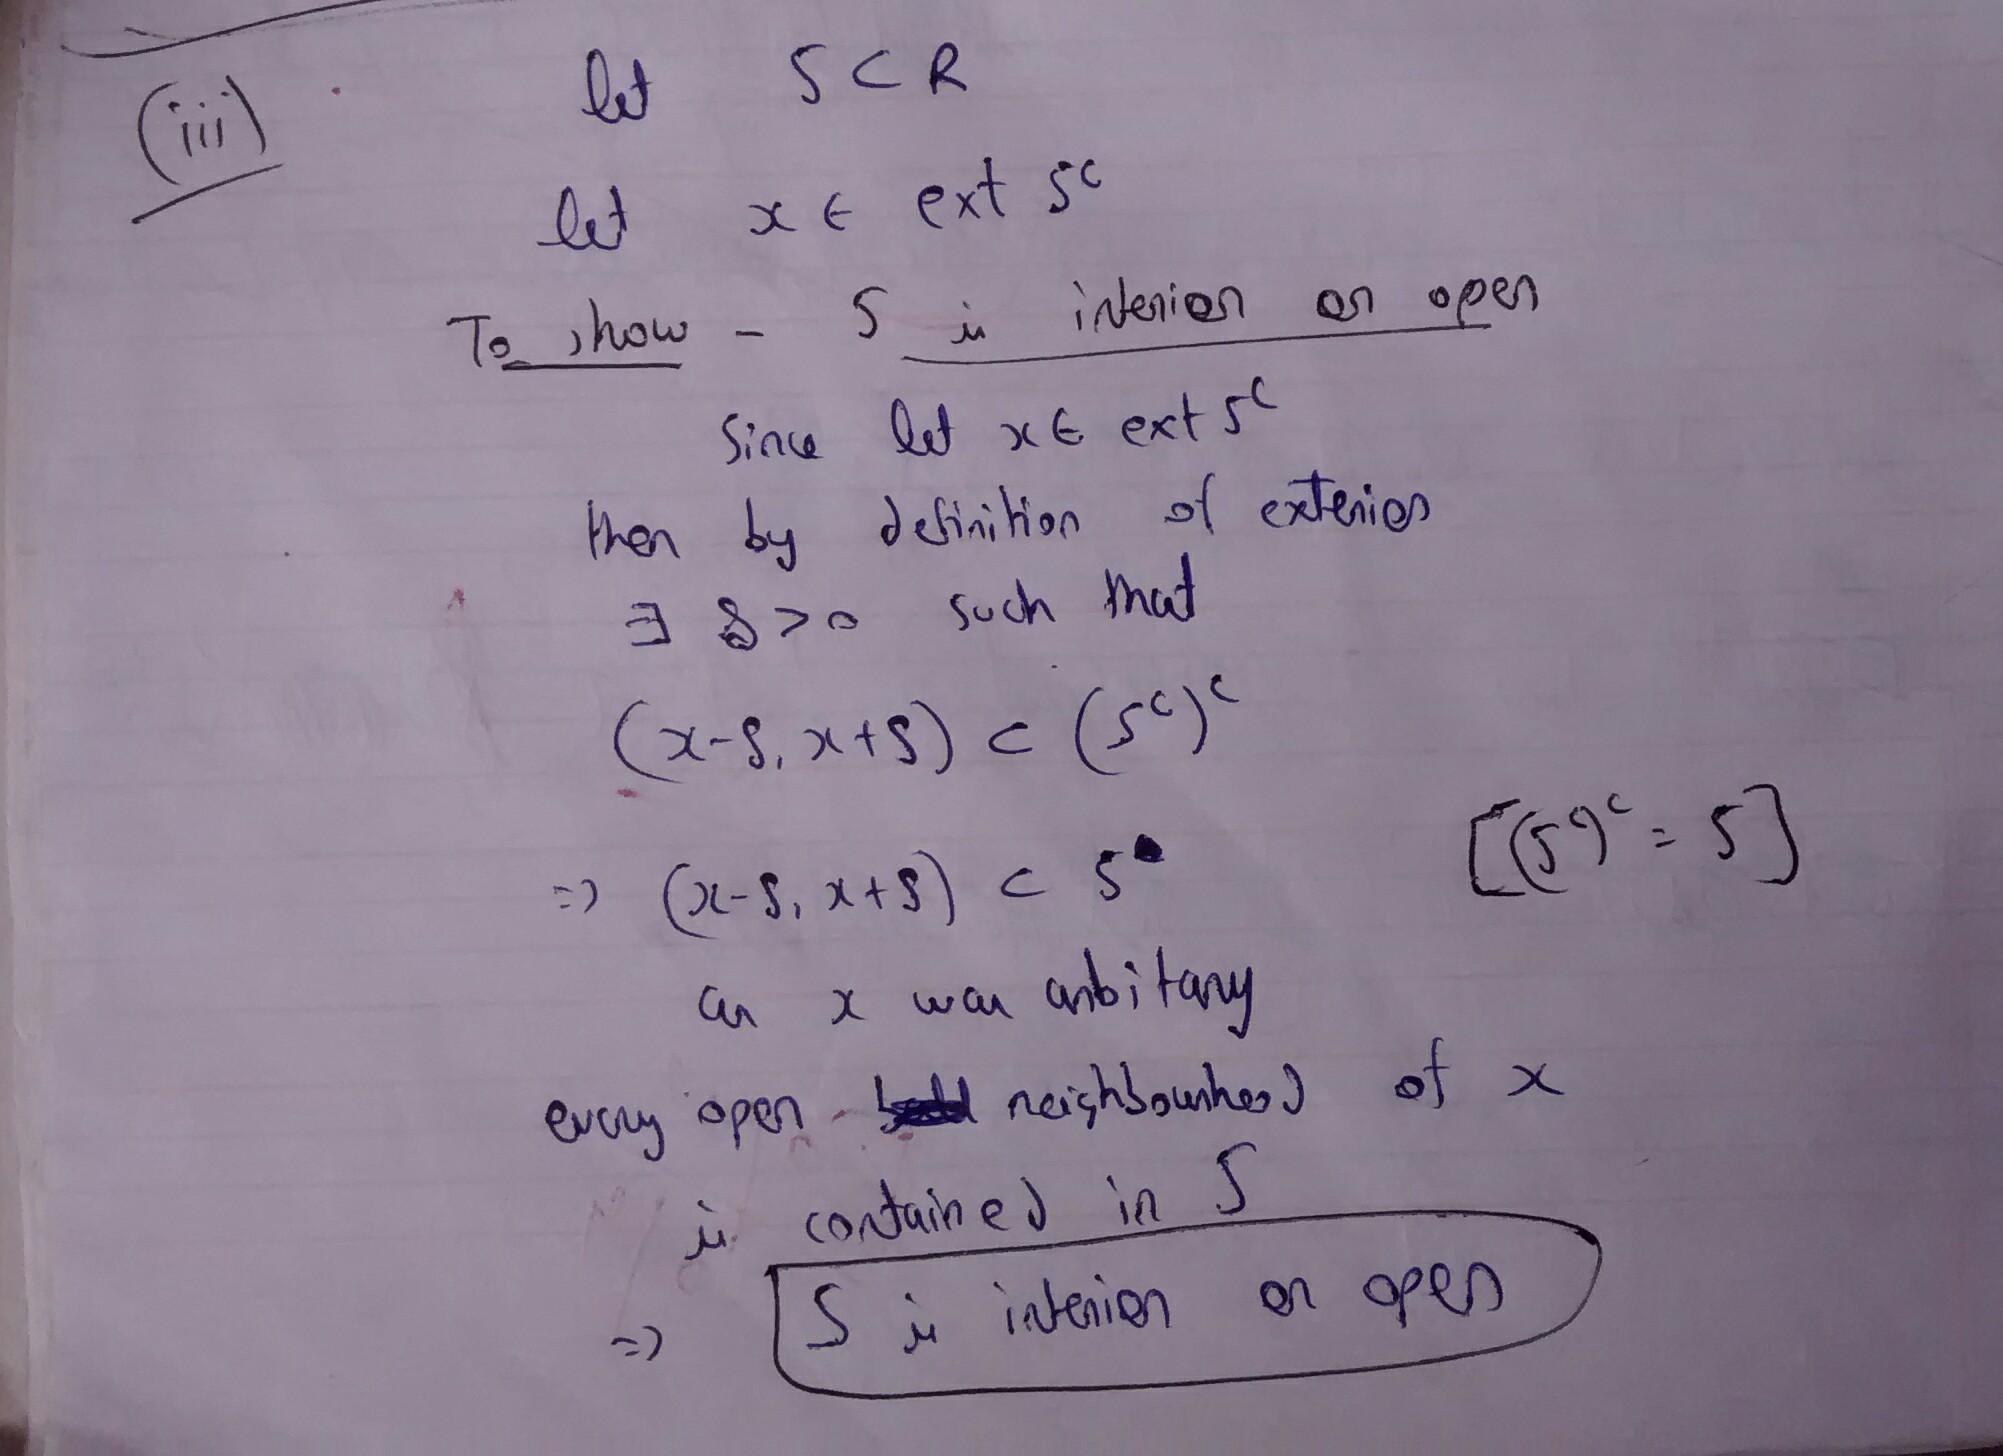 (iii) let S ⊂ R
let x ∈ ext S^c
To show - S is interior or open
Since let x ∈ ext S^c
then by definition of exterior
∃ δ>0 such that
(x-δ, x+δ) ⊂ (S^c)^c
=> (x-δ, x+δ) ⊂ S [(S^c)^c = S]
as x was arbitary
every open neighbourhood of x
is contained in S
=> S is interior or open